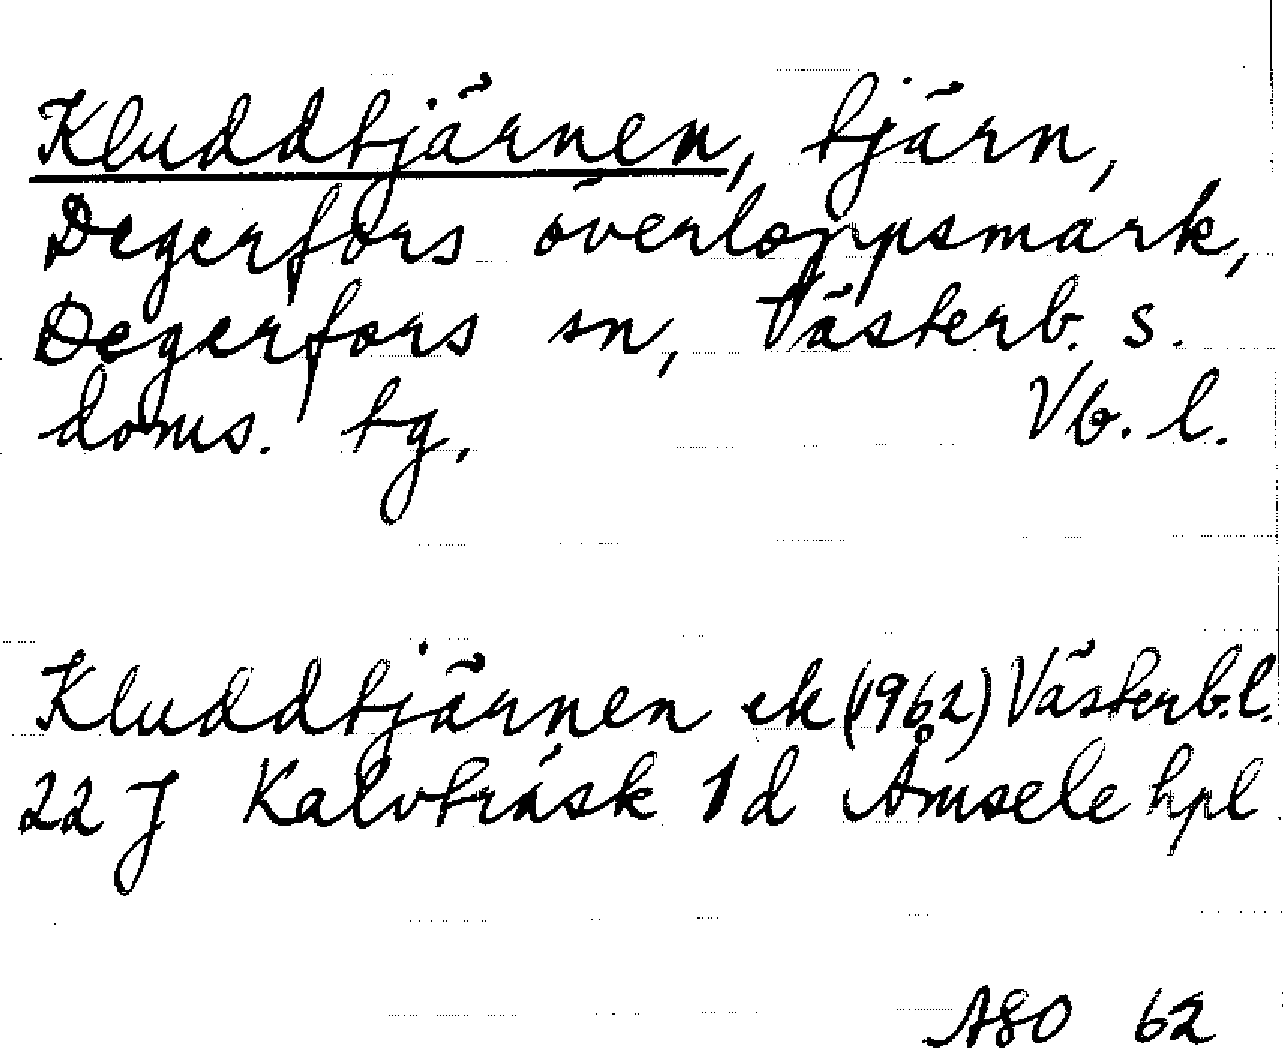 Kluddtjärnen, tjärn,
Degerfors överloppsmark,
Degerfors sn, Västerb. s.
doms. tg. Vb. l.
Kluddtjärnen ek (1962) Västerb. l.
22 J Kalvträsk 1 d Åmsele hpl
ASO 62